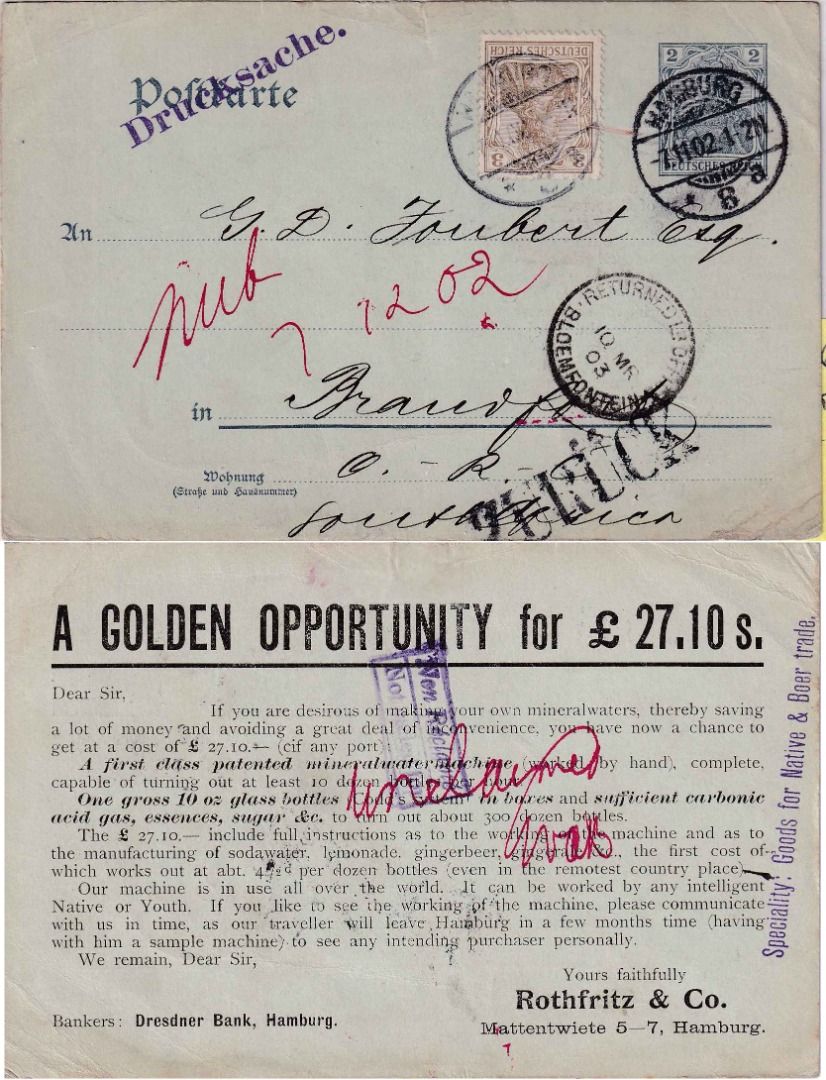 Drucksache.
Postkarte
DEUTSCHES REICH
3 3
2 2
DEUTSCHES
HAMBURG
7.11.02.1-2N.
* 8 a
An G. D. Joubert Esq.
nub
7 12 02
RETURNED LR OFF
BLOEMFONTEIN
10 MR
03
in
Wohnung
(Straße und Hausnummer)
O. - R. -
South Africa
ZURÜCK
A GOLDEN OPPORTUNITY for £ 27.10 s.
Dear Sir,
If you are desirous of making your own mineralwaters, thereby saving
a lot of money and avoiding a great deal of inconvenience, you have now a chance to
get at a cost of £ 27.10.— (cif any port)
A first class patented mineralwatermachine (worked by hand), complete,
capable of turning out at least 10 dozen bottles per hour.
One gross 10 oz glass bottles in boxes and sufficient carbonic
acid gas, essences, sugar &c. to turn out about 300 dozen bottles.
The £ 27.10.— include full instructions as to the working of the machine and as to
the manufacturing of sodawater, lemonade, gingerbeer, gingerale &c., the first cost of
which works out at abt. 4½d per dozen bottles (even in the remotest country place).
Our machine is in use all over the world. It can be worked by any intelligent
Native or Youth. If you like to see the working of the machine, please communicate
with us in time, as our traveller will leave Hamburg in a few months time (having
with him a sample machine) to see any intending purchaser personally.
We remain, Dear Sir,
Yours faithfully
Rothfritz & Co.
Bankers: Dresdner Bank, Hamburg.
Mattentwiete 5—7, Hamburg.
Speciality: Goods for Native & Boer trade.
Non Réclamé
Not
unclaymed